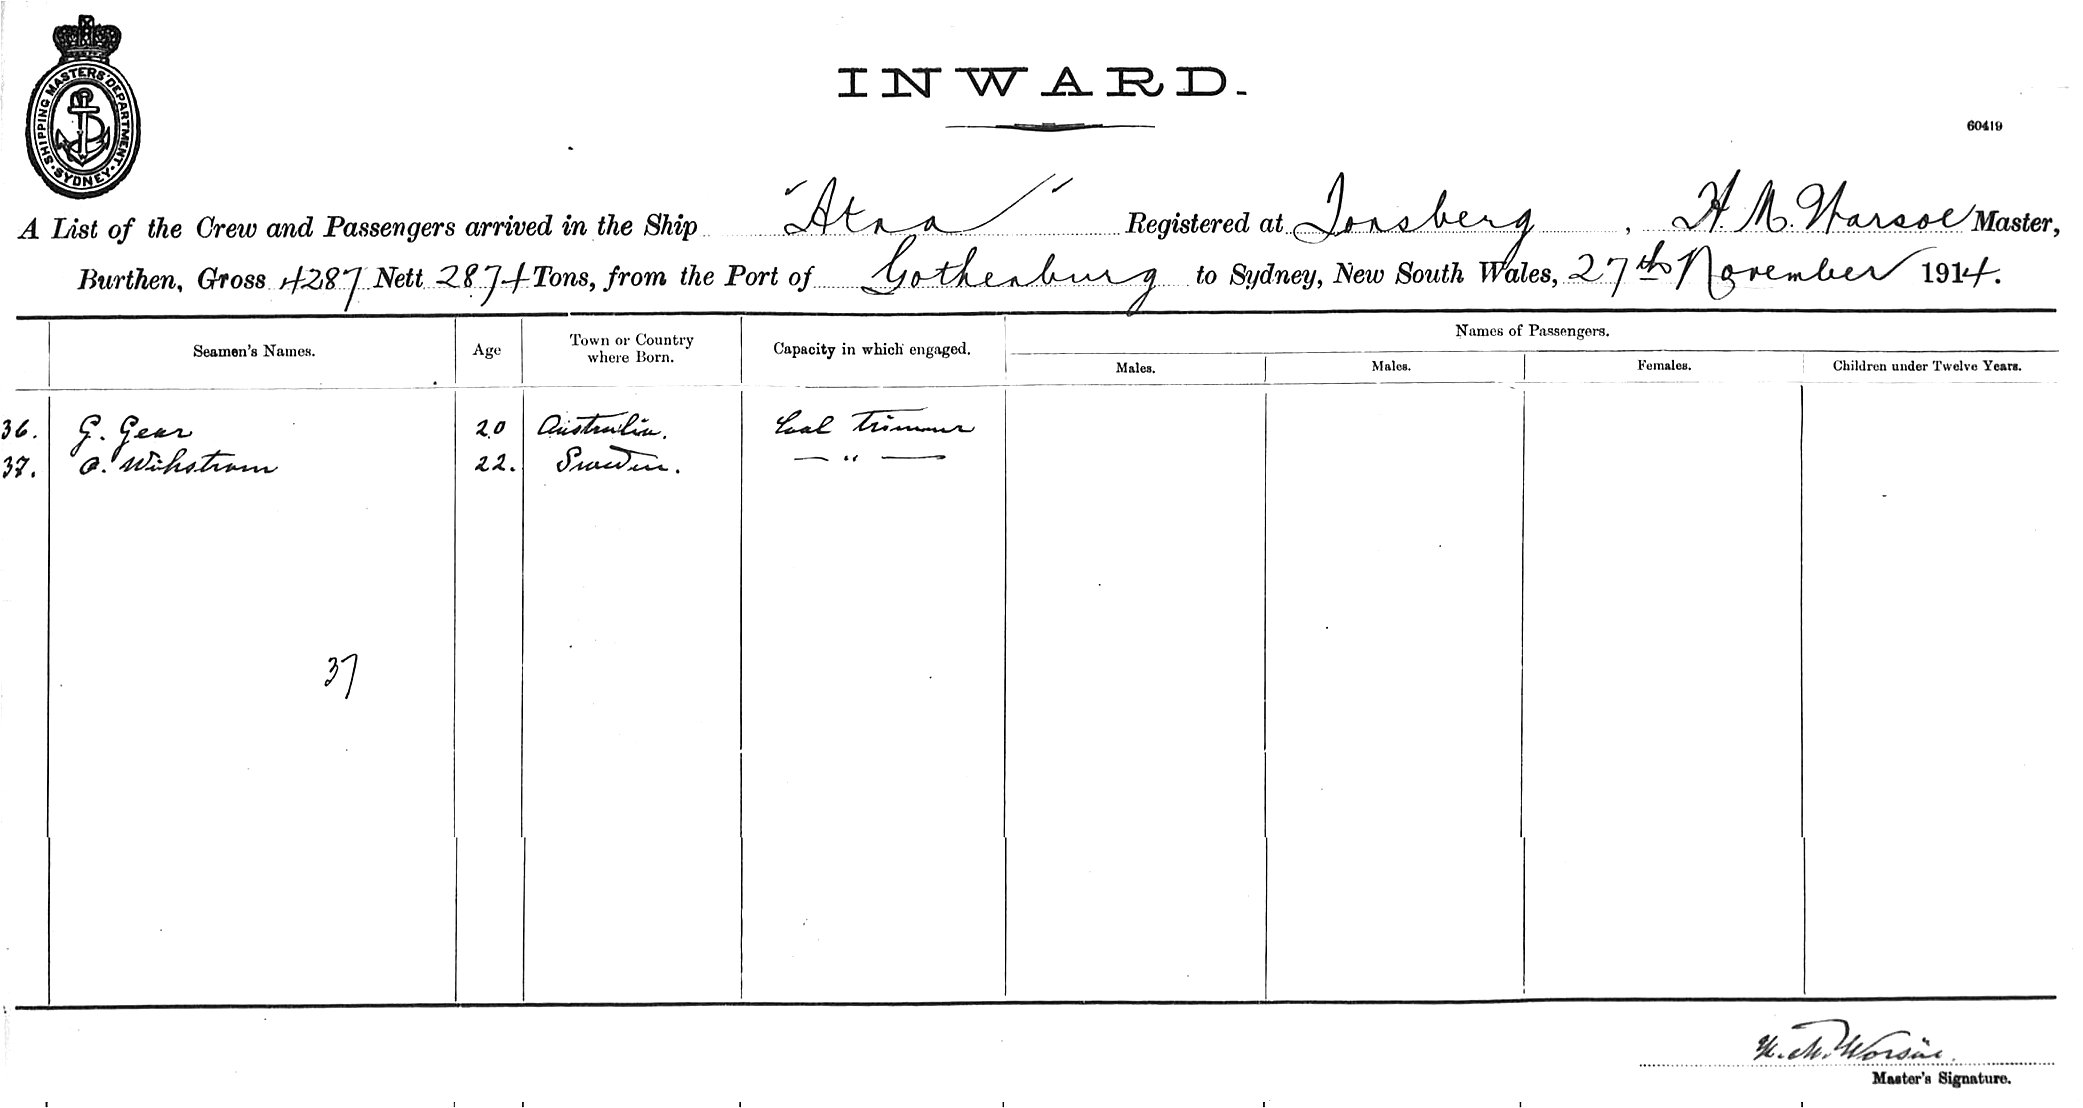 SHIPPING MASTERS' DEPARTMENT. SYDNEY.
INWARD.
60419
A List of the Crew and Passengers arrived in the Ship "Atna" Registered at Tonsberg, H. M. Warsoe Master,
Burthen, Gross 4287 Nett 2874 Tons, from the Port of Gothenburg to Sydney, New South Wales, 27th November 1914.
Names of Passengers.
Seamen's Names. Age Town or Country where Born. Capacity in which engaged. Males. Males. Females. Children under Twelve Years.
36. G. Gear 20 Australia. Coal Trimmer
37. O. Wikstrom 22. Sweden. — " —
37
H. M. Worsöe.
Master's Signature.